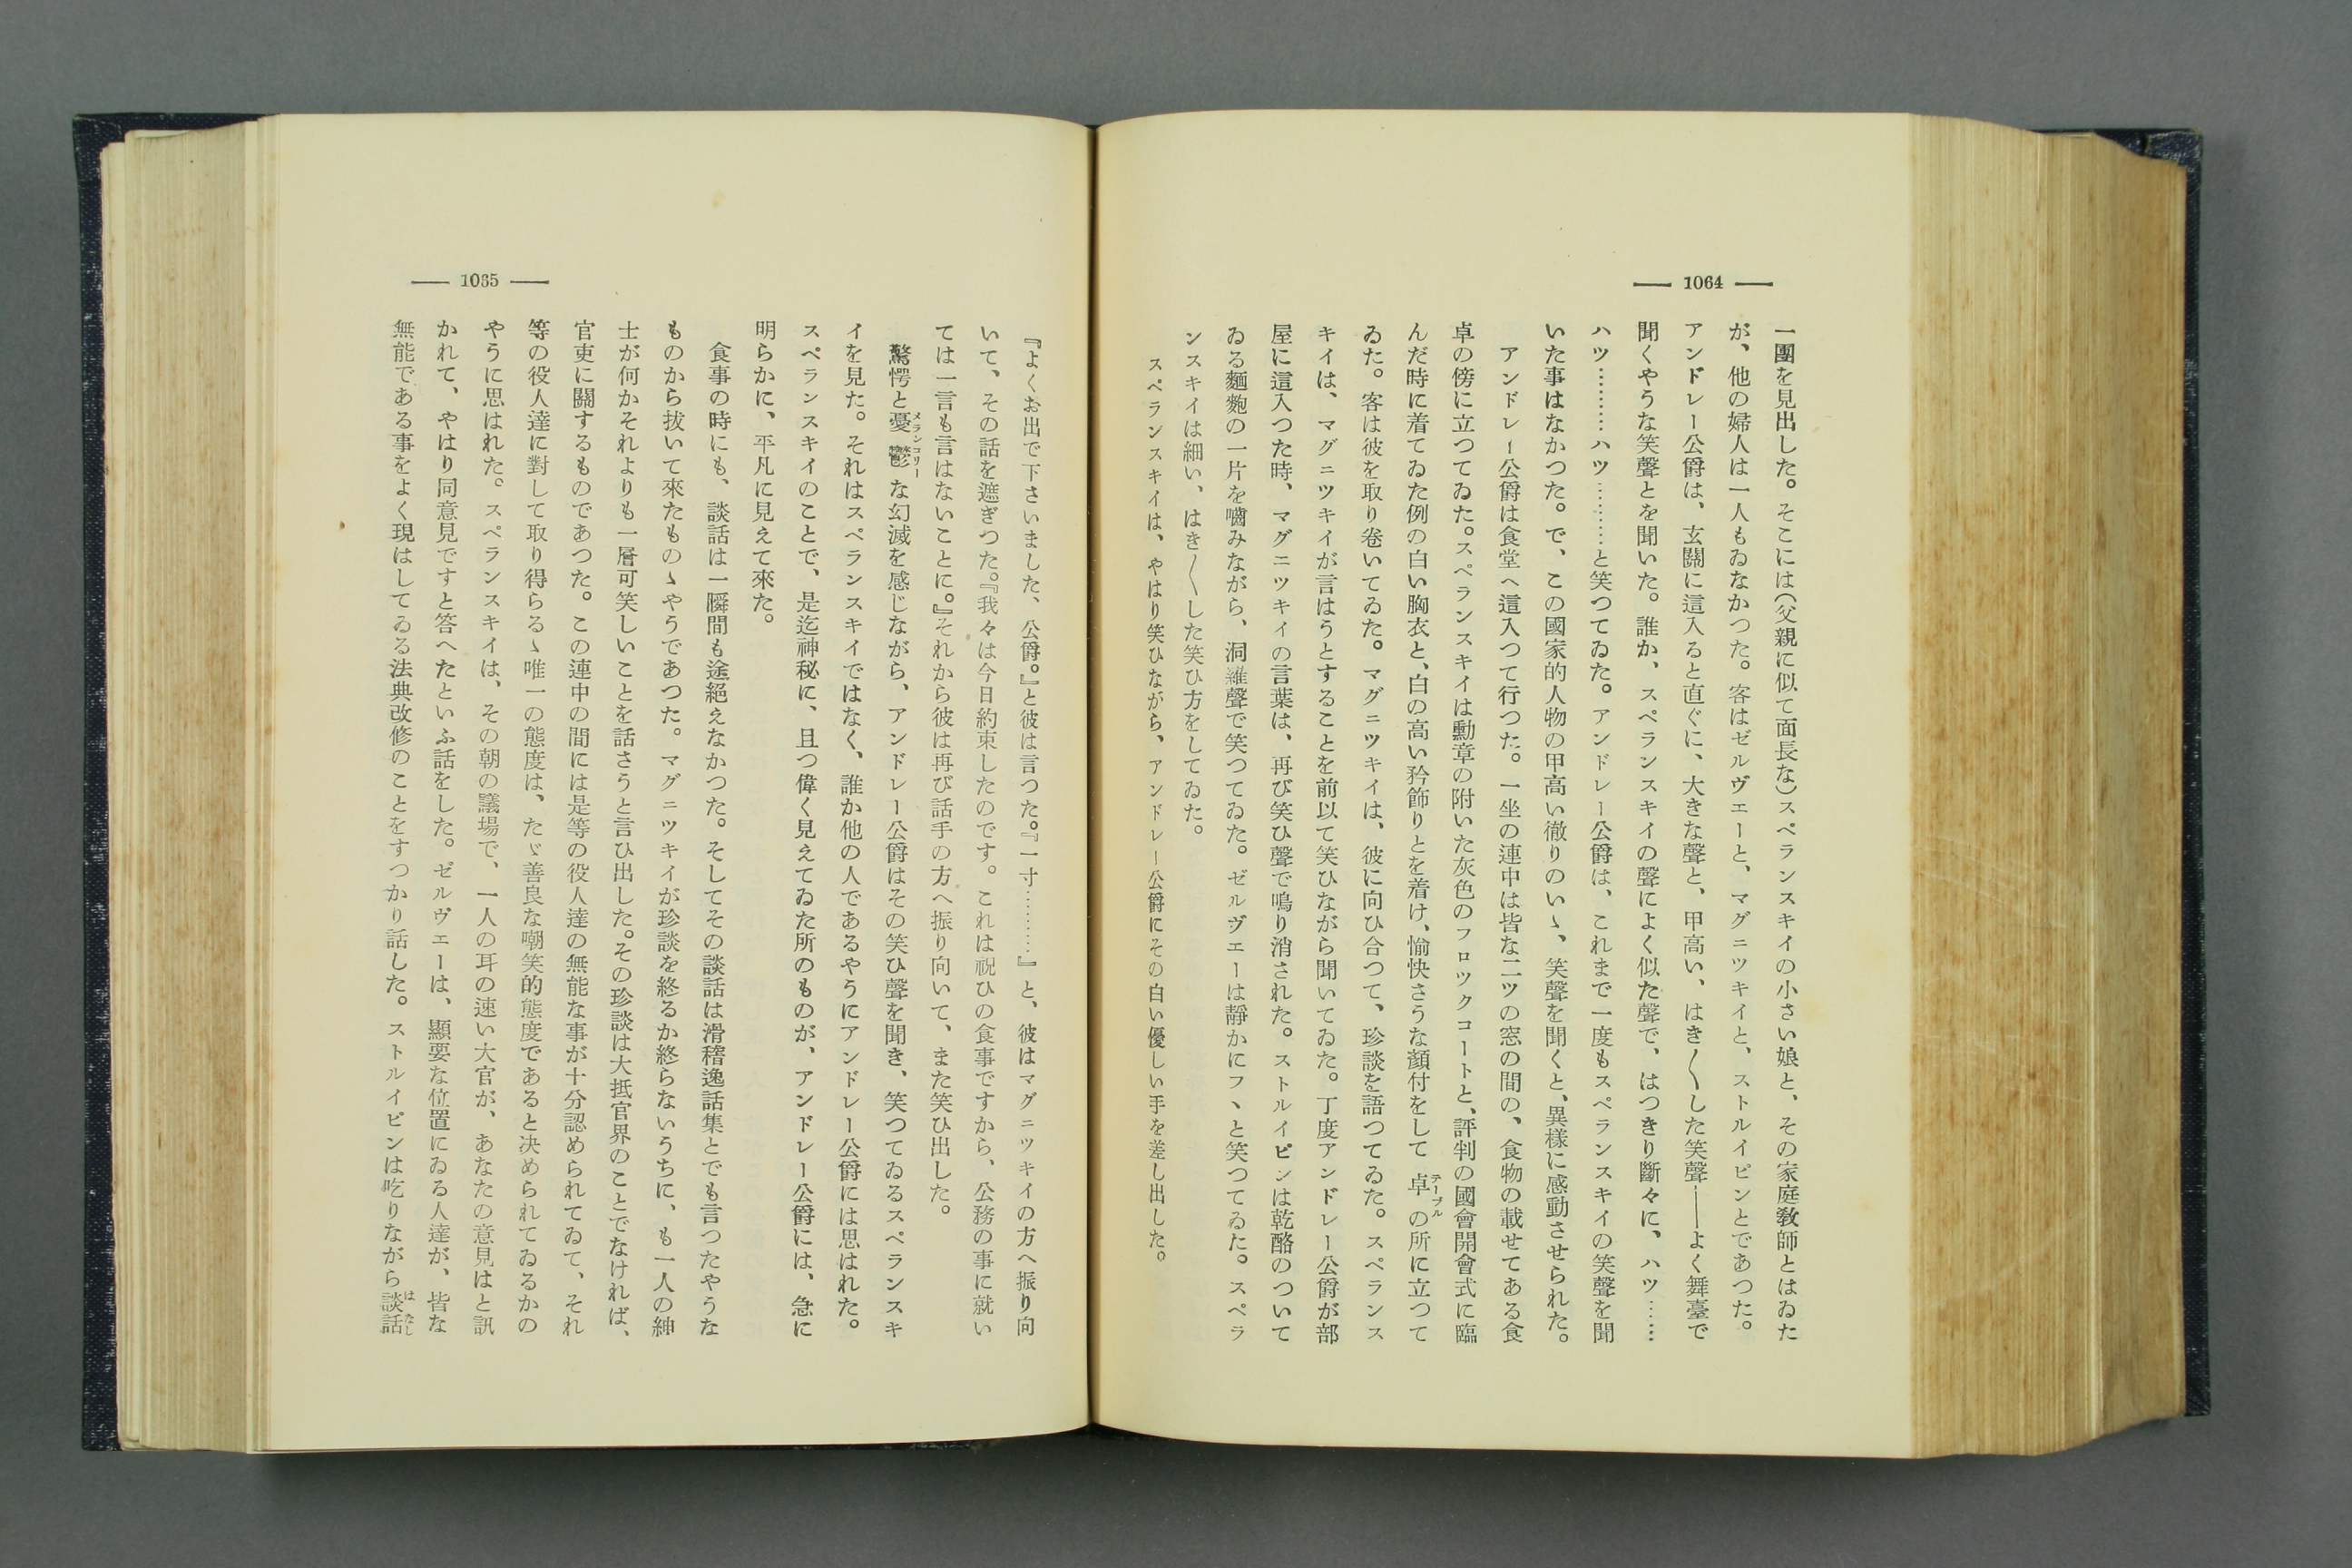 — 1064 —
一團を見出した。そこには(父親に似て面長な)スペランスキイの小さい娘と、その家庭教師とはゐた
が、他の婦人は一人もゐなかつた。客はゼルヴエーと、マグニツキイと、ストルイピンとであつた。
アンドレー公爵は、玄關に這入ると直ぐに、大きな聲と、甲高い、はき〳〵した笑聲――よく舞臺で
聞くやうな笑聲とを聞いた。誰か、スペランスキイの聲によく似た聲で、はつきり斷々に、ハツ……
ハツ…………ハツ…………と笑つてゐた。アンドレー公爵は、これまで一度もスペランスキイの笑聲を聞
いた事はなかつた。で、この國家的人物の甲高い徹りのいゝ、笑聲を聞くと、異樣に感動させられた。
アンドレー公爵は食堂へ這入つて行つた。一坐の連中は皆な二ツの窓の間の、食物の載せてある食
卓の傍に立つてゐた。スペランスキイは勳章の附いた灰色のフロツクコートと、評判の國會開會式に臨
んだ時に着てゐた例の白い胸衣と、白の高い衿飾りとを着け、愉快さうな顏付をして卓テーブルの所に立つて
ゐた。客は彼を取り卷いてゐた。マグニツキイは、彼に向ひ合つて、珍談を語つてゐた。スペランス
キイは、マグニツキイが言はうとすることを前以て笑ひながら聞いてゐた。丁度アンドレー公爵が部
屋に這入つた時、マグニツキイの言葉は、再び笑ひ聲で鳴り消された。ストルイピンは乾酪のついて
ゐる麵麭の一片を嚙みながら、洞羅聲で笑つてゐた。ゼルヴエーは靜かにフヽと笑つてゐた。スペラ
ンスキイは細い、はき〳〵した笑ひ方をしてゐた。
スペランスキイは、やはり笑ひながら、アンドレー公爵にその白い優しい手を差し出した。
— 1065 —
『よくお出で下さいました、公爵。』と彼は言つた。『一寸…………』と、彼はマグニツキイの方へ振り向
いて、その話を遮ぎつた。『我々は今日約束したのです。これは祝ひの食事ですから、公務の事に就い
ては一言も言はないことに。』それから彼は再び話手の方へ振り向いて、また笑ひ出した。
驚愕と憂鬱メランコリーな幻滅を感じながら、アンドレー公爵はその笑ひ聲を聞き、笑つてゐるスペランスキ
イを見た。それはスペランスキイではなく、誰か他の人であるやうにアンドレー公爵には思はれた。
スペランスキイのことで、是迄神秘に、且つ偉く見えてゐた所のものが、アンドレー公爵には、急に
明らかに、平凡に見えて來た。
食事の時にも、談話は一瞬間も途絕えなかつた。そしてその談話は滑稽逸話集とでも言つたやうな
ものから拔いて來たものゝやうであつた。マグニツキイが珍談を終るか終らないうちに、も一人の紳
士が何かそれよりも一層可笑しいことを話さうと言ひ出した。その珍談は大抵官界のことでなければ、
官吏に關するものであつた。この連中の間には是等の役人達の無能な事が十分認められてゐて、それ
等の役人達に對して取り得らるゝ唯一の態度は、たゞ善良な嘲笑的態度であると決められてゐるかの
やうに思はれた。スペランスキイは、その朝の議場で、一人の耳の速い大官が、あなたの意見はと訊
かれて、やはり同意見ですと答へたといふ話をした。ゼルヴエーは、顯要な位置にゐる人達が、皆な
無能である事をよく現はしてゐる法典改修のことをすつかり話した。ストルイピンは吃りながら談話はなし